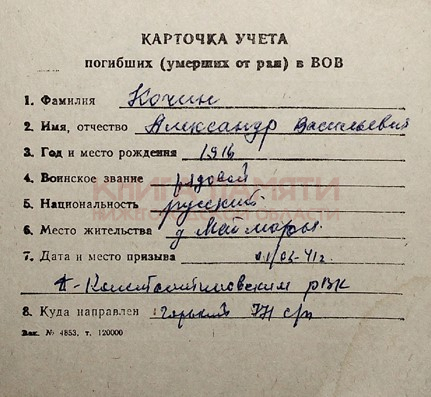 КАРТОЧКА УЧЕТА
погибших (умерших от ран) в ВОВ
1. Фамилия Кочин
2. Имя, отчество Александр Васильевич
3. Год и место рождения 1916
4. Воинское звание рядовой
КНИГА ПАМЯТИ
5. Национальность русский
НИЖЕГОРОДСКОЙ ОБЛАСТИ
6. Место жительства д Майморы
7. Дата и место призыва /06-41г.
Д-Константиновским РВК
8. Куда направлен Горький 171 с/п
Зак. № 4853. т. 120000